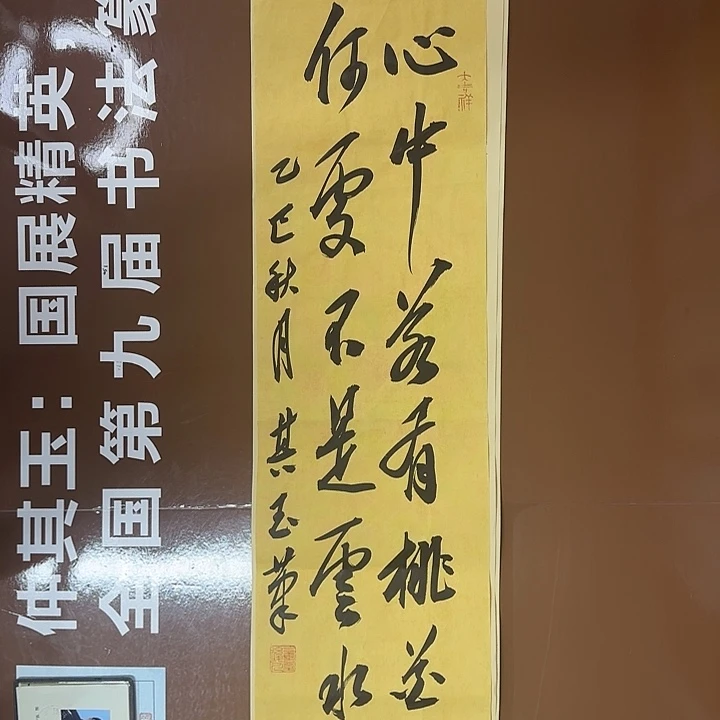 心中若有桃花
何處不是雲水
乙巳秋月 其玉筆
仲其玉：国展精英，
全国第九届书法篆